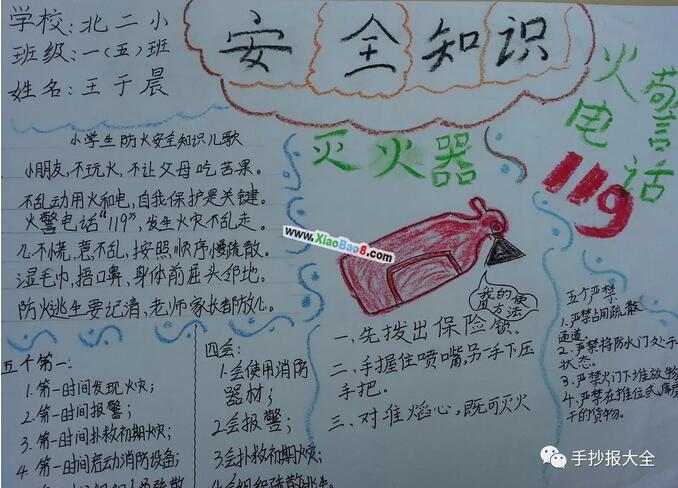 学校:北二小
班级:一(五)班
姓名:王于晨
安全知识
火警
电话
119
小学生防火安全知识儿歌
小朋友,不玩火,不让父母吃苦果。
不乱动用火和电,自我保护是关键。
火警电话“119”,发生火灾不乱走。
心不慌,意不乱,按照顺序慢疏散。
湿毛巾,捂口鼻,身体前屈头邻地。
防火逃生要记清,老师家长都放心。
灭火器
www.XiaoBao8.com
我的使
用方法
一、先拨出保险锁。
二、手握住喷嘴,另一手下压
手把。
三、对准焰心,既可灭火
五个第一:
1.第一时间发现火灾;
2.第一时间报警;
3.第一时间扑救初期火灾;
4.第一时间启动消防设备;
四会:
1.会使用消防
器材;
2.会报警;
3.会扑救初期火灾;
4.会组织疏散逃生。
五个严禁
1.严禁占用疏散
通道。
2.严禁将防水门处于
状态。
3.严禁火门下堆放物
4.严禁在推位式库房
干的货物。
手抄报大全